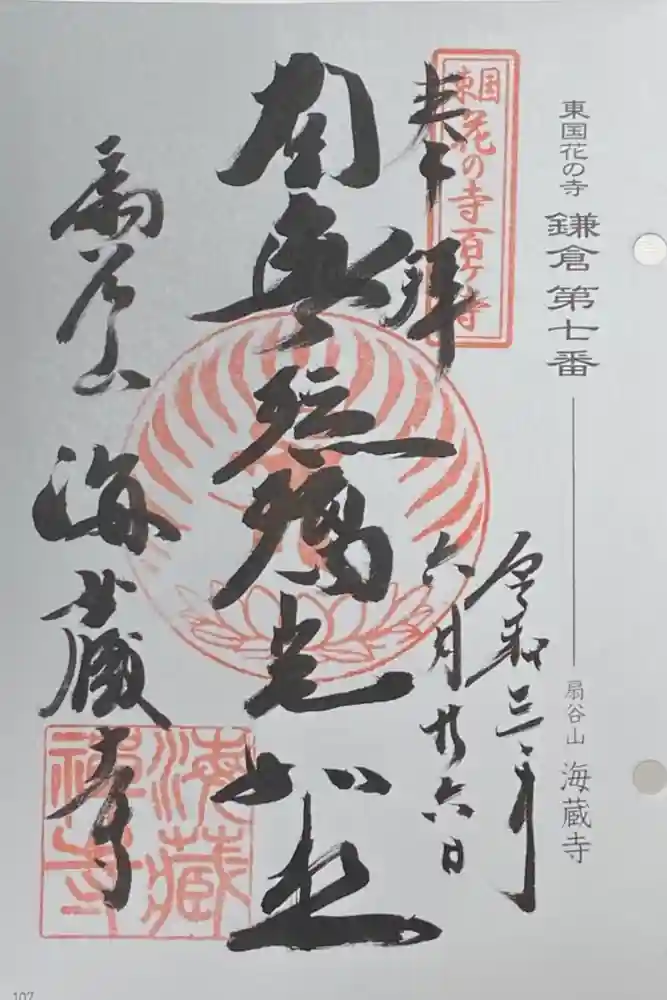 東国花の寺 鎌倉第七番
扇谷山 海蔵寺
東国
花の寺百ヶ寺
奉拝
令和三年
六月廿六日
瑠璃光如来
扇谷山 海蔵寺
海蔵
禅寺
107